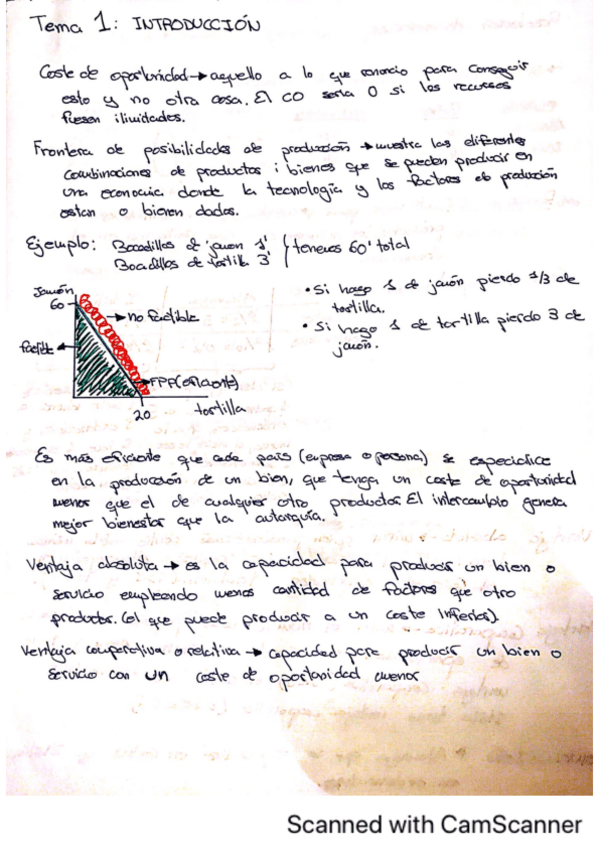 Tema 1: INTRODUCCIÓN
Coste de oportunidad → aquello a lo que renuncio para conseguir
esto y no otra cosa. El CO sería 0 si los recursos
fuesen ilimidades.
Frontera de posibilidades de producción → muestra las diferentes
combinaciones de productos i bienes que se pueden producir en
una economia donde la tecnología y los factores de producción
estan o bienen dados.
Ejemplo: Bocadillos de jamon 1' } tenemos 60' total
Bocadillos de tortilla 3'
• Si hago 1 de jamón pierdo 1/3 de
tortilla.
• Si hago 1 de tortilla pierdo 3 de
jamón.
Jamón
60
→ no factible
factible
→ FPP (eficiente)
20
tortilla
Es más eficiente que cada país (empresa o persona) se especialice
en la producción de un bien, que tenga un coste de oportunidad
menor que el de cualquier otro productor. El intercambio genera
mejor bienestar que la autarquía.
Ventaja absoluta → es la capacidad para producir un bien o
servicio empleando menos cantidad de factores que otro
productor. (el que puede producir a un coste inferior)
Ventaja comparativa o relativa → capacidad para producir un bien o
servicio con un coste de oportunidad menor
Scanned with CamScanner